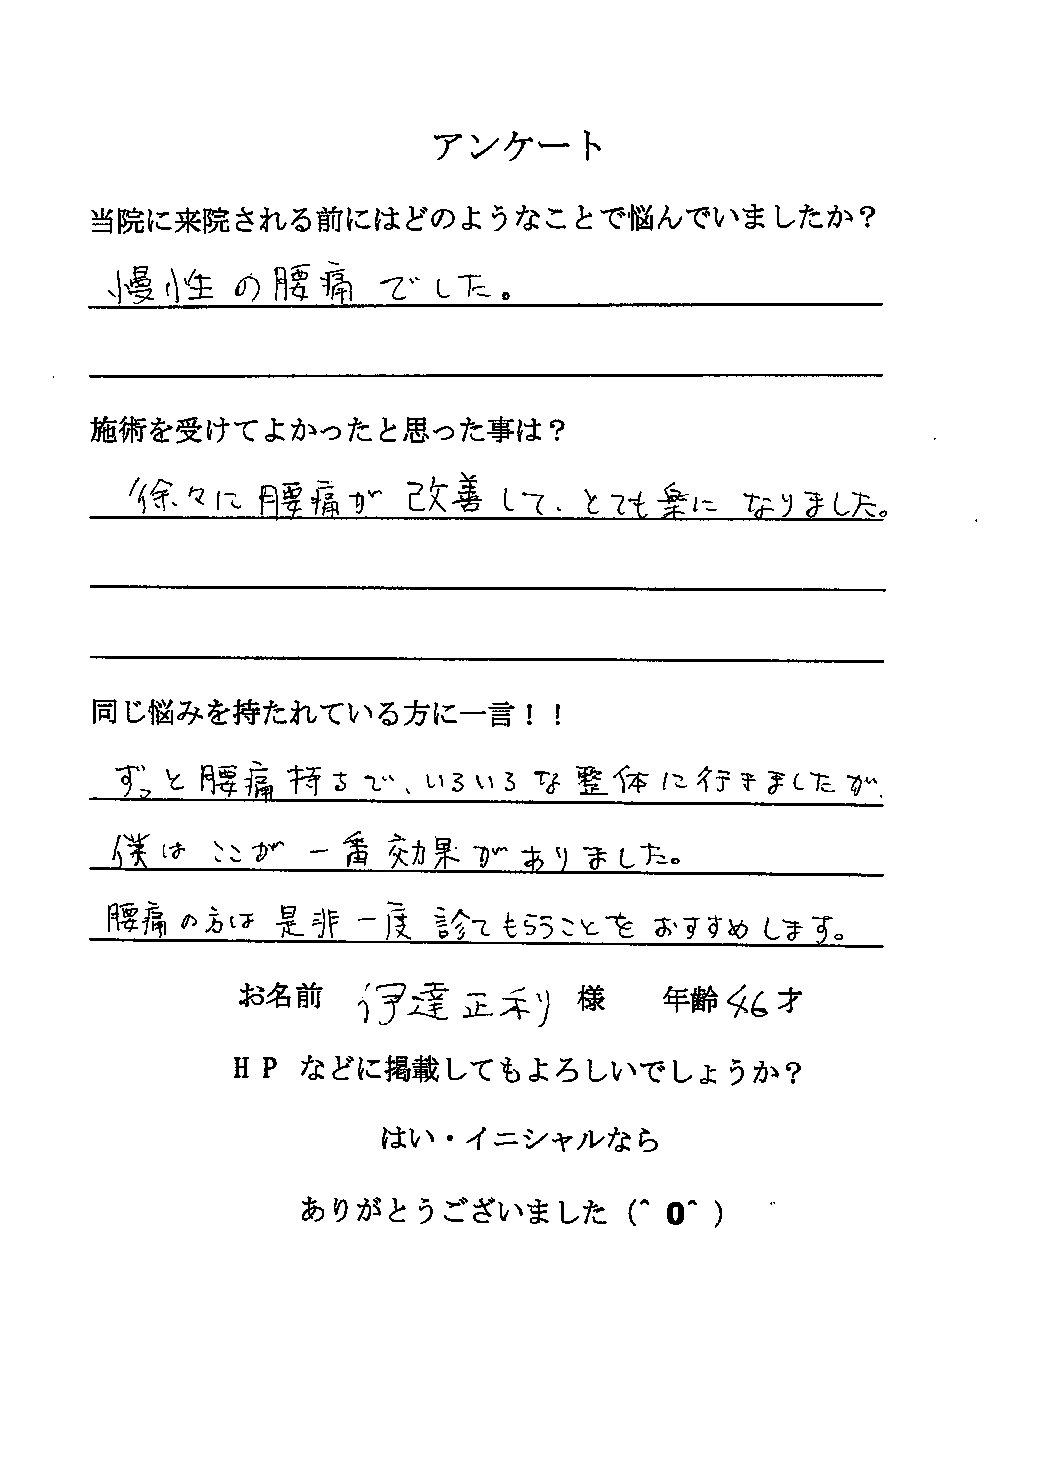 アンケート
当院に来院される前にはどのようなことで悩んでいましたか？
慢性の腰痛でした。
施術を受けてよかったと思った事は？
徐々に腰痛が改善して、とても楽になりました。
同じ悩みを持たれている方に一言！！
ずっと腰痛持ちで、いろいろな整体に行きましたが、
僕はここが一番効果がありました。
腰痛の方は是非一度診てもらうことをおすすめします。
お名前 伊達正利 様 年齢 46 才
ＨＰ などに掲載してもよろしいでしょうか？
はい・イニシャルなら
ありがとうございました（＾０＾）